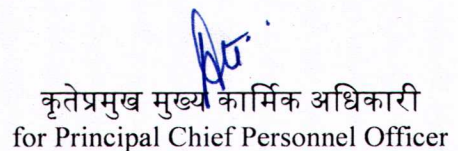 कृतेप्रमुख मुख्य कार्मिक अधिकारी
for Principal Chief Personnel Officer